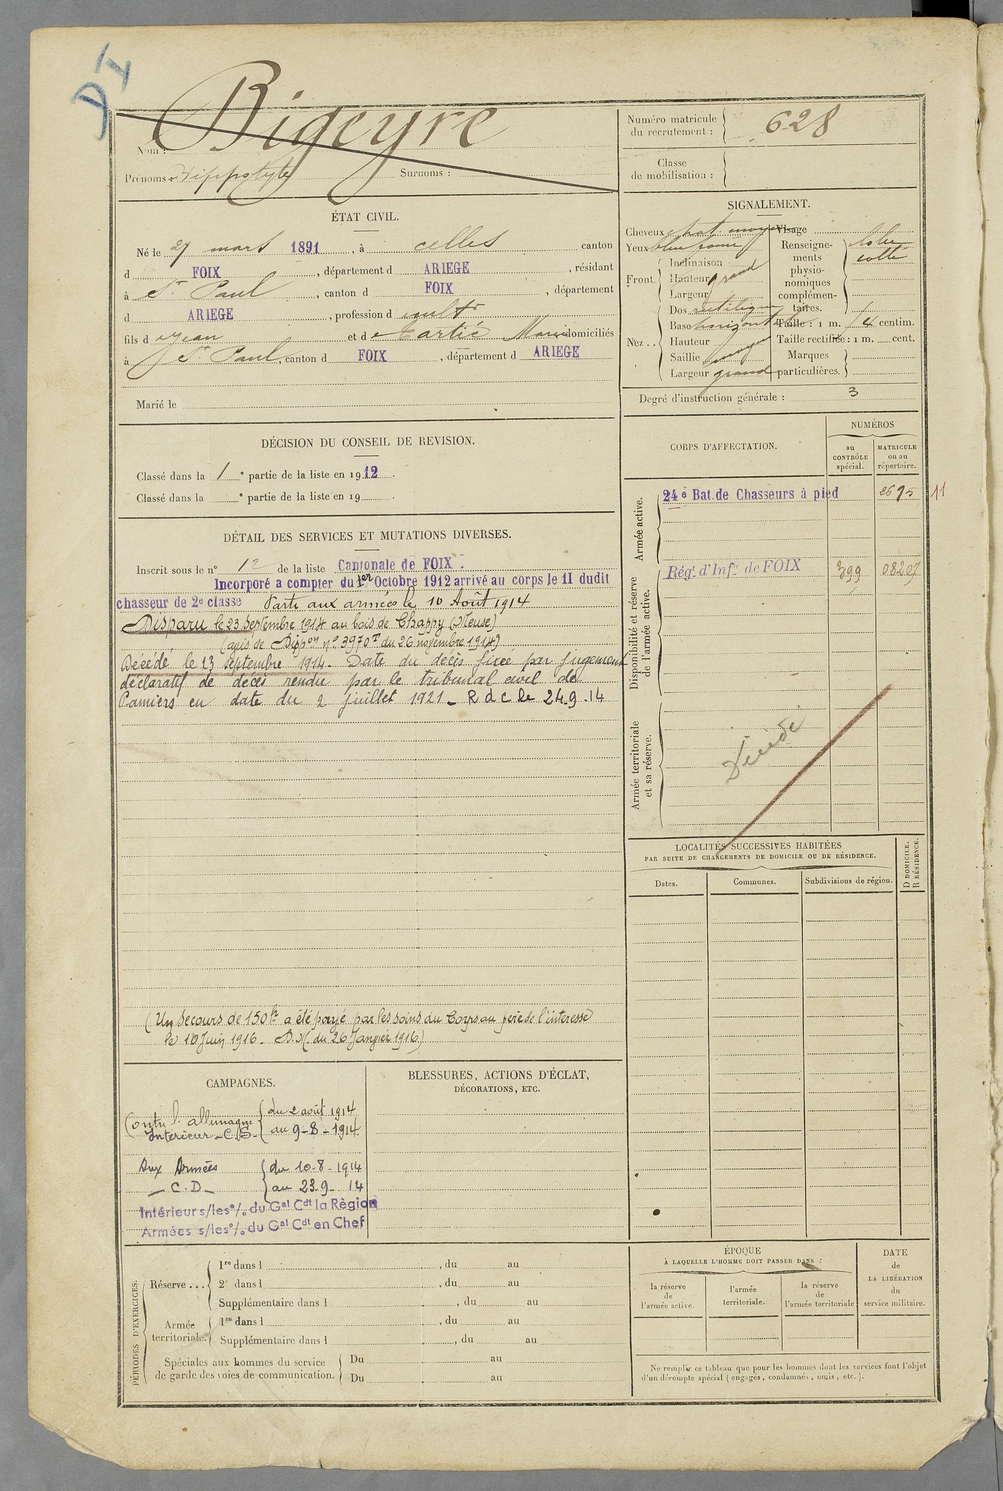 D I
Bigeyre
Nom :
Prénoms : Hippolyte Surnoms :
Numéro matricule du recrutement : 628
Classe de mobilisation :
ÉTAT CIVIL.
Né le 27 mars 1891, à celles canton
d FOIX, département d ARIEGE, résidant
à St Paul, canton d FOIX, département
d ARIEGE, profession d cultr
fils d e Jean et d e Tartié Marie domiciliés
à St Paul, canton d FOIX, département d ARIEGE
Marié le
SIGNALEMENT.
Cheveux chat moyen
Yeux
Front.
Inclinaison
Hauteur grand
Largeur
Nez..
Dos rectiligne
Base horizontal
Hauteur
Saillie moyen
Largeur grand
Visage
Renseignements physionomiques complémentaires.
Taille : 1 m. 64 centim.
Taille rectifiée : 1 m. cent.
Marques particulières.
Degré d'instruction générale : 3
DÉCISION DU CONSEIL DE REVISION.
Classé dans la 1 e partie de la liste en 1912.
Classé dans la e partie de la liste en 19 .
DÉTAIL DES SERVICES ET MUTATIONS DIVERSES.
Inscrit sous le n° 12 de la liste Cantonale de FOIX.
Incorporé a compter du 1er Octobre 1912 arrivé au corps le 11 dudit
chasseur de 2e classe Parti aux armées le 10 Août 1914
Disparu le 23 Septembre 1914 au bois de Chappy (Meuse)
(avis de Dispon n° 3970T du 26 novembre 1914)
Décédé le 23 septembre 1914. Date du décès fixée par jugement
déclaratif de décès rendu par le tribunal civil de
Pamiers en date du 2 juillet 1921 - R d C le 24.9.14
(Un Secours de 150 fr a été payé par les soins du Corps au père de l'interessé
le 10 Juin 1916. D.M. du 26 Janvier 1916)
CORPS D'AFFECTATION.
NUMÉROS
au CONTRÔLE spécial.
MATRICULE ou au répertoire.
Armée active.
24e Bat. de Chasseurs à pied 11
Disponibilité et réserve de l'armée active.
Régt d'Infie de FOIX 399 08207
Armée territoriale et sa réserve.
Décédé
LOCALITÉS SUCCESSIVES HABITÉES
PAR SUITE DE CHANGEMENTS DE DOMICILE OU DE RÉSIDENCE.
D DOMICILE. R RÉSIDENCE.
Dates. Communes. Subdivisions de région.
CAMPAGNES.
Contre l'allemagne du 2 août 1914
Intérieur - C.S. au 9-8-1914
Aux Armées du 10-8-1914
- C.D - au 23.9.14
Intérieur s/les o/o du Gal Cdt la Région
Armées s/les o/o du Gal Cdt en Chef
BLESSURES, ACTIONS D'ÉCLAT,
DÉCORATIONS, ETC.
PÉRIODES D'EXERCICES.
Réserve ...
1re dans l , du au
2e dans l , du au
Supplémentaire dans l , du au
Armée territoriale.
1re dans l , du au
Supplémentaire dans l , du au
Spéciales aux hommes du service de garde des voies de communication.
Du au
Du au
ÉPOQUE
À LAQUELLE L'HOMME DOIT PASSER DANS :
la réserve de l'armée active.
l'armée territoriale.
la réserve de l'armée territoriale
DATE de LA LIBÉRATION du service militaire.
Ne remplir ce tableau que pour les hommes dont les services font l'objet
d'un décompte spécial (engagés, condamnés, omis, etc.).